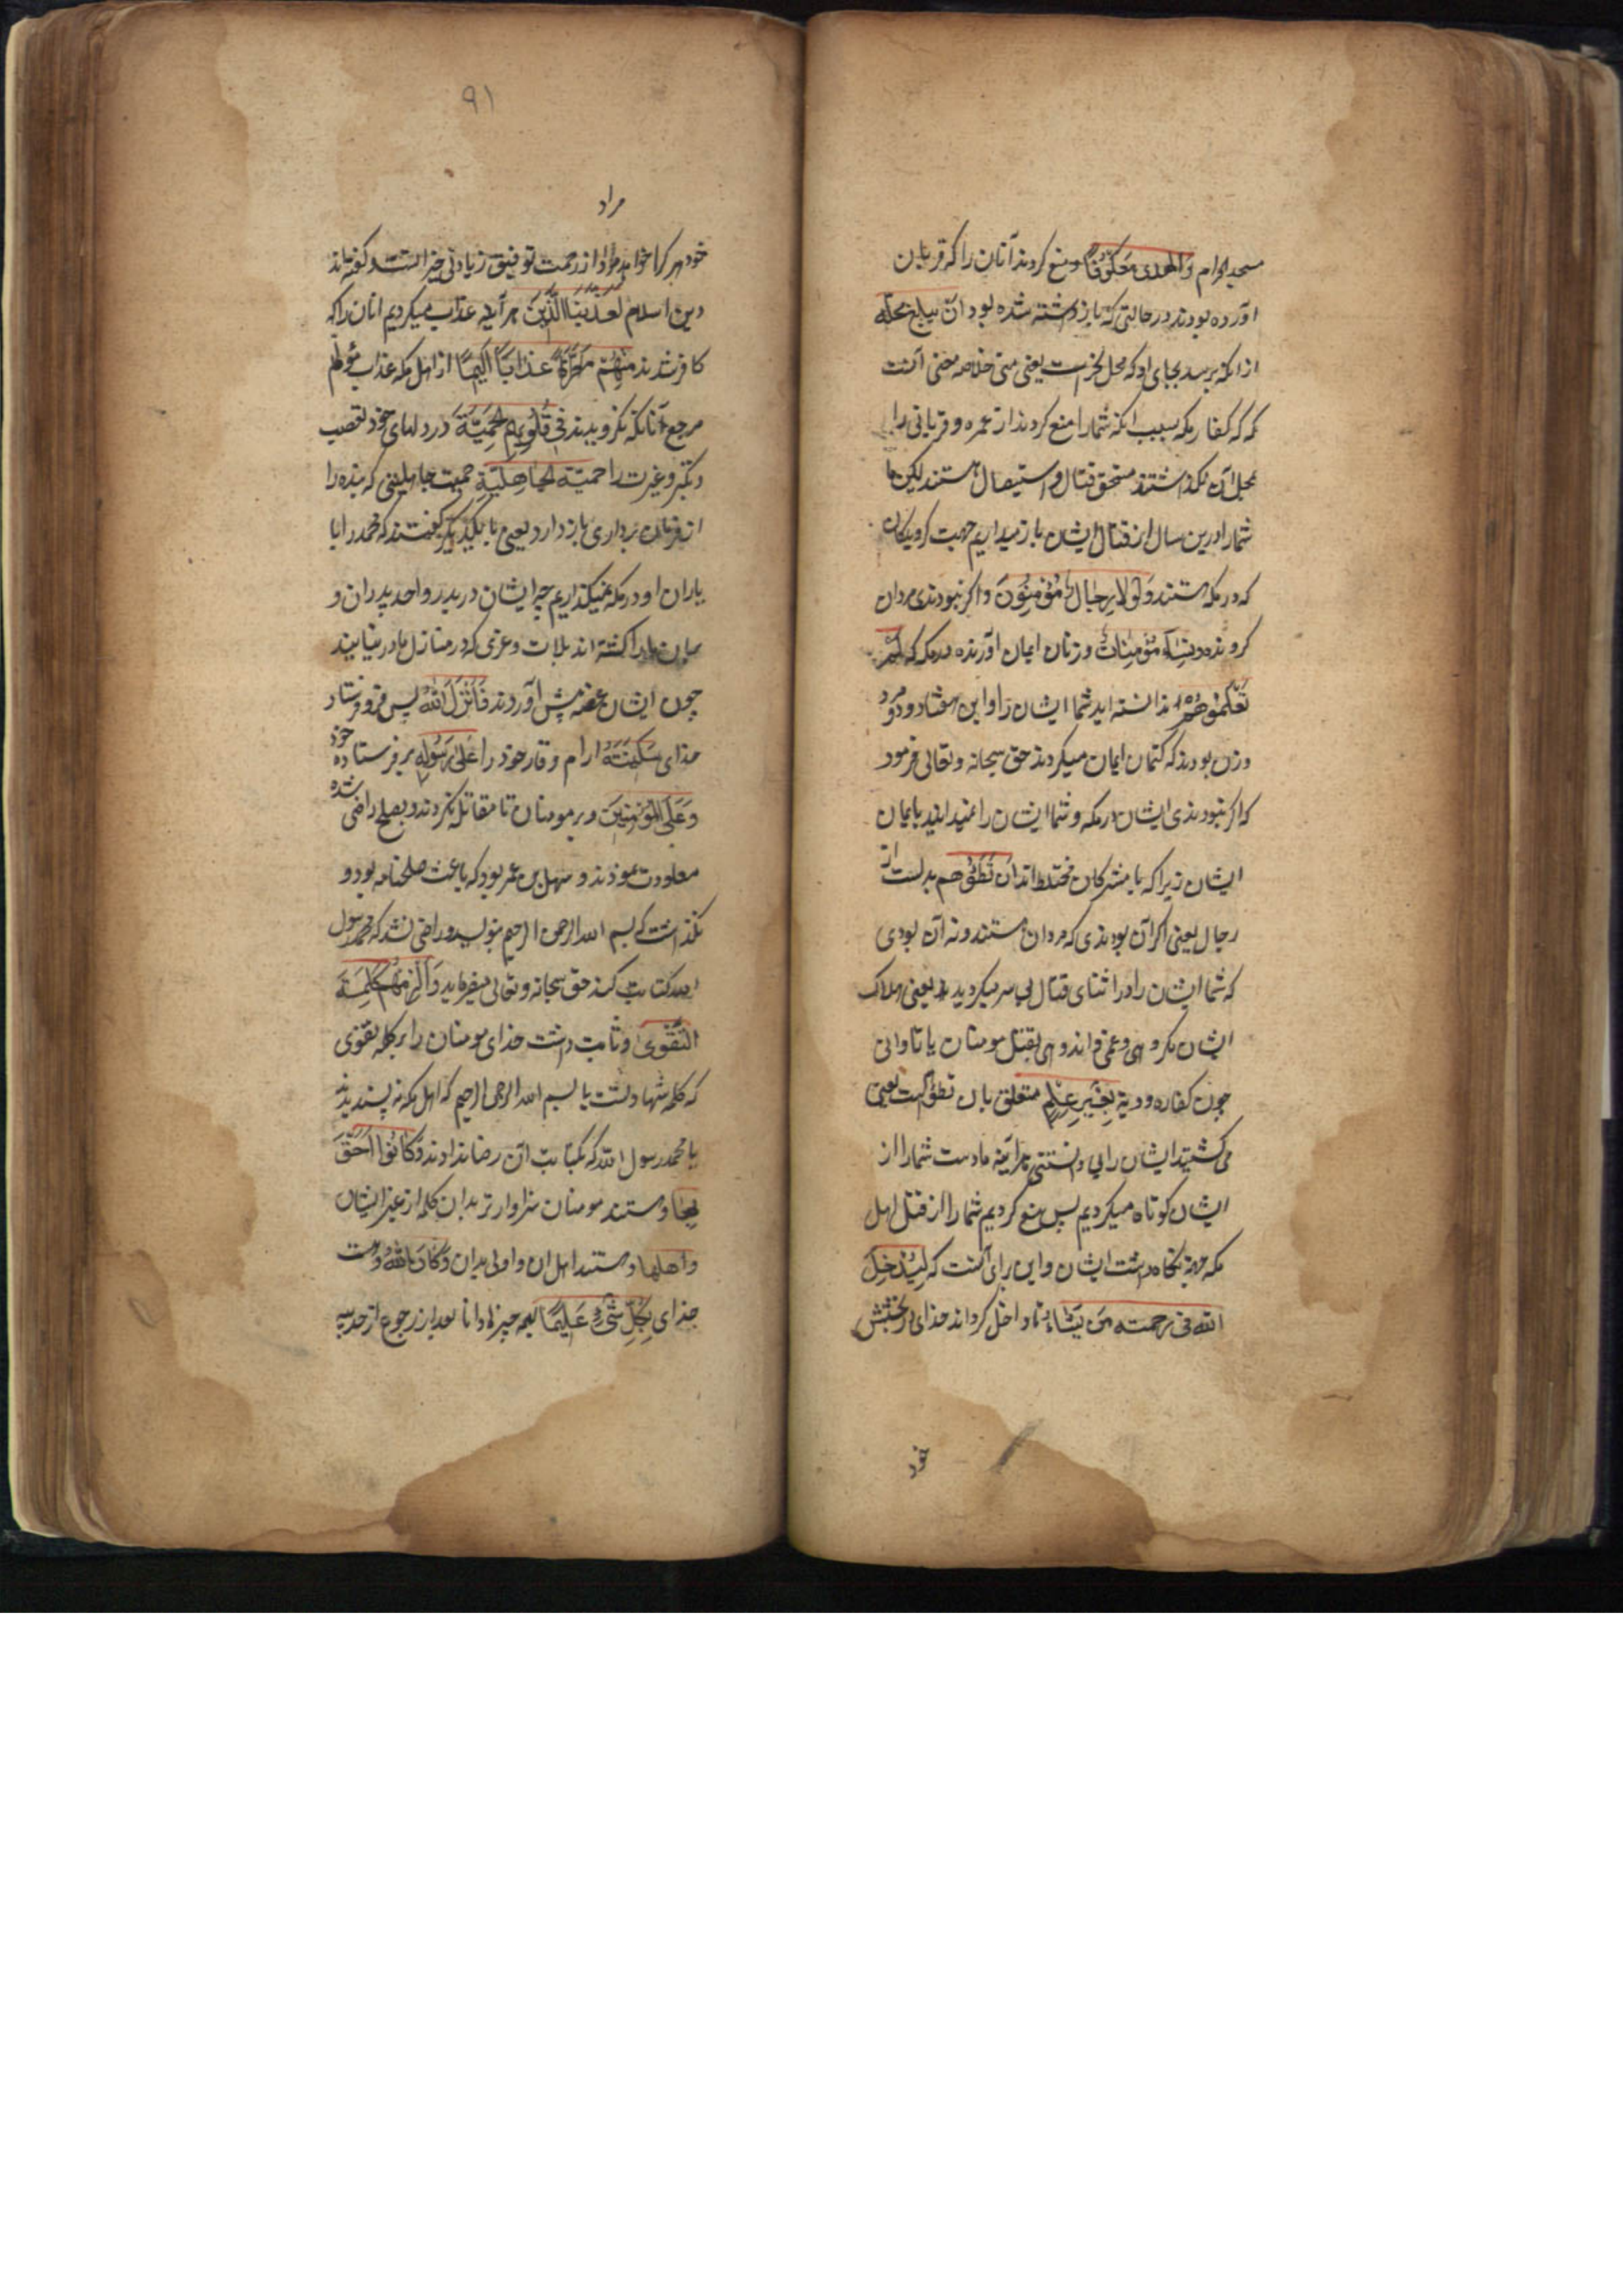 مسجد الحرام وَالْهَدْیَ مَعْکُوفًا و منع کردند آنان را که قربان
آورده بودند در حالتی که باز داشته شده بود اَنْ یَبْلُغَ مَحِلَّهُ
از انکه برسد بجای او که محل نحر است یعنی منی خلاصه معنی آنست
که کفار مکه بسبب انکه شما را منع کردند از عمره و قربانی را
بمحل آن نگذاشتند مستحق قتال و استیصال هستند لیکن ما
شما را درین سال از قتال ایشان باز میداریم جهت کرویدکان
که در مکه هستند وَلَوْلَا رِجَالٌ مُؤْمِنُونَ و اکر نبودندی مردان
کرونده وَنِسَاءٌ مُؤْمِنَاتٌ و زنان ایمان آورنده در مکه که لَمْ
تَعْلَمُوهُمْ ندانسته اید شما ایشان را و این هفتاد و دو مرد
و زن بودند که کتمان ایمان میکردند حق سبحانه و تعالی فرمود
که اکر نبودندی ایشان در مکه و شما ایشان را نمیدانید بایمان
ایشان زیرا که با مشرکان مختلط اند اَنْ تَطَئُوهُمْ بدلست از
رجال یعنی اکر آن بودندی که مردان هستند و نه آن بودی
که شما ایشان را در اثنای قتال پی سپر میکردید یعنی هلاک
ایشان مکروهی و غمی و اندوهی بقتل مومنان یا تاوانی
چون کفاره و دیة بِغَیْرِ عِلْمٍ متعلق بان تطئو است یعنی
می کشتید ایشان را بی دانستنی هرآینه ما دست شما را از
ایشان کوتاه میکردیم پس منع کردیم شما را از قتل اهل
مکه جهة نکاه داشت ایشان و این برای آنست که لِیُدْخِلَ
اللَّهُ فِی رَحْمَتِهِ مَنْ یَشَاءُ تا داخل کرداند خدای در بخشش
خود
۹۱
مراد
خود هر کرا خواهد از رحمت توفیق زیادتی خیر است و کفته اند
دین اسلام لَعَذَّبْنَا الَّذِینَ هر آینه عذاب میکردیم انان را که
کافر شدند مِنْهُمْ عَذَابًا اَلِیمًا از اهل مکه عذاب مولم
مرجع آنانکه نکرویدند فِی قُلُوبِهِمُ الْحَمِیَّةَ در دلهای خود تعصب
و تکبر و غیرت را حَمِیَّةَ الْجَاهِلِیَّةِ حمیت جاهلیتی که بنده را
از فرمان برداری باز دارد یعنی با یکدیکر کفتند که محمد را با
یاران او در مکه نمیکذاریم چه ایشان در بدر و احد پدران و
ما را کشته اند بلات و عزی که در منازل ما در نیایند
چون ایشان عصبه پیش آوردند فَاَنْزَلَ اللَّهُ پس فرو فرستاد
خدای سَکِینَتَهُ ارام و وقار خود را عَلَی رَسُولِهِ بر فرستاده خود
وَعَلَی الْمُؤْمِنِینَ و بر مومنان تا مقاتله نکردند و بصلح راضی شده
معاودت نمودند و سهیل بن عمر بود که باعث صلحنامه بود و
نکذاشت که بسم الله الرحمن الرحیم بنویسد و راضی نشد که محمد رسول
الله کتابت کنند حق سبحانه و تعالی میفرماید وَاَلْزَمَهُمْ کَلِمَةَ
التَّقْوَی و ثابت داشت خدای مومنان را بر کلمه تقوی
که کلمه شهادتست یا بسم الله الرحمن الرحیم که اهل مکه نه پسندیدند
یا محمد رسول الله که بکتابت آن رضا ندادند وَکَانُوا اَحَقَّ
بِهَا و هستند مومنان سزاوارتر بدان کلمه از غیر ایشان
وَاَهْلَهَا و هستند اهل ان و اولی بدان وَکَانَ اللَّهُ و هست
خدای بِکُلِّ شَیْءٍ عَلِیمًا بهمه چیزها دانا بعد از رجوع از حدیبیه